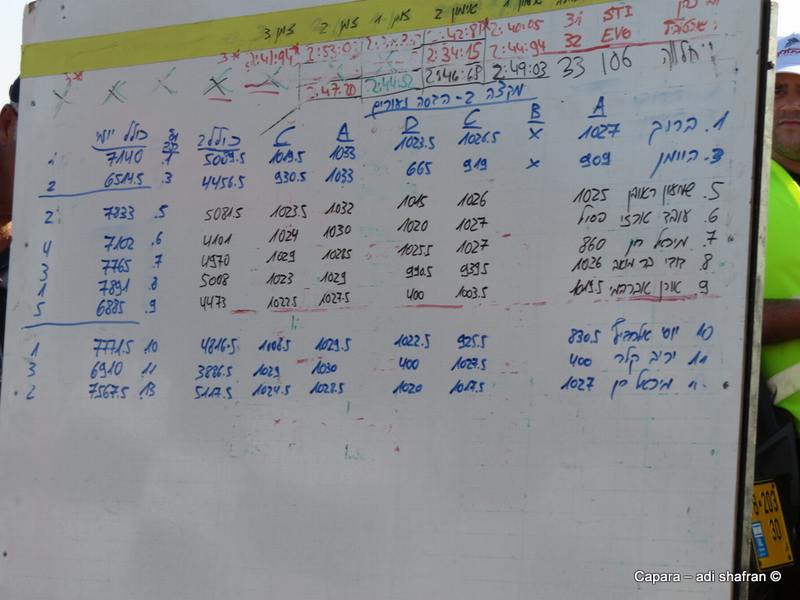 צמן 3 צמן 2 צמן 1 אימון 2
2:41:94* 2:53:0 2:42:81* 2:40:05 31 STI
3* 2:34:15 2:44:94 32 EVO
3* X X X X X 47:20 2:44:52 2:46:68 2:49:03 33 106
מקצה 2 - הבסה נעורים
A B C D A C כולל 2 כולל יומי
1. ברוך 1027 X 1026.5 1023.5 1033 1019.5 5009.5 .1 7140
3. היומן 909 X 919 665 1033 930.5 4456.5 .3 6514.5 2
5. שמעון ראובן 1025 1026 1015 1032 1023.5 5081.5 .5 7833 2
6. עובד ארזי פסול 1027 1020 1030 1024 4101 .6 7102 4
7. מיכאל חן 860 1027 1025.5 1028.5 1029 4970 .7 7765 3
8. דודי בר מואב 1026 939.5 990.5 1029 1023 5008 .8 7891 1
9. אורן אברהמי 1019.5 1003.5 400 1027.5 1022.5 4473 .9 6885 5
10 יוסי 830.5 925.5 1022.5 1029.5 1008.5 4816.5 .10 7771.5 1
11 יריב קלר 400 1027.5 400 1030 1029 3886.5 .11 6910 3
מיכאל חן 1027 1017.5 1020 1028.5 1024.5 5117.5 .13 7567.5 2
8-203
30
Capara – adi shafran ©